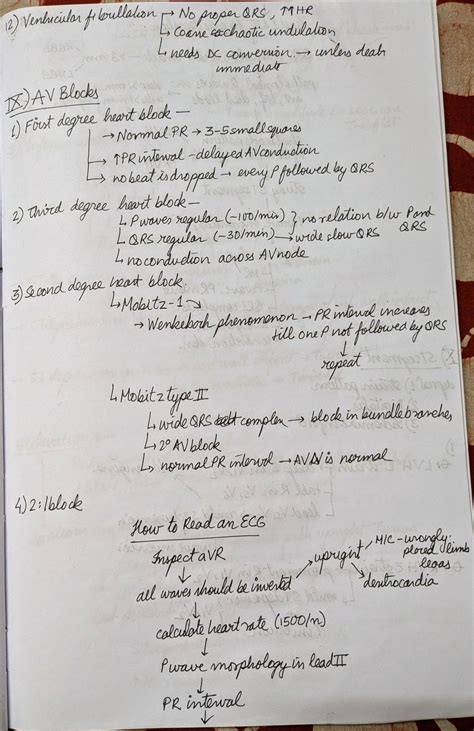 12) Ventricular fibrillation → No proper QRS, ↑↑HR
→ Coarse chaotic undulation
→ needs DC conversion → unless death
immediate
IX.) AV Blocks
1) First degree heart block —
→ Normal PR → 3-5 small squares
→ ↑PR interval - delayed AV conduction
→ no beat is dropped → every P followed by QRS
2) Third degree heart block —
↳ P waves regular (~100/min) } no relation b/w P and
↳ QRS regular (~30/min) → wide slow QRS QRS
↳ no conduction across AV node
3) Second degree heart block
↳ Mobitz-1
→ Wenkebach phenomenon → PR interval increases
till one P not followed by QRS
↓
repeat
↳ Mobitz type II
↳ wide QRS complex → block in bundle branches
↳ 2° AV block
↳ normal PR interval → AVN is normal
4) 2:1 block
How to Read an ECG
Inspect aVR
↓
all waves should be inverted → upright → M/C - wrongly
placed limb
leads
→ dextrocardia
↓
calculate heart rate (1500/n)
↓
P wave morphology in lead II
↓
PR interval
↓